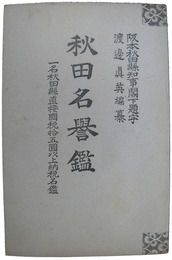 阪本秋田縣知事閣下題字
渡邊眞英編纂
秋田名譽鑑
一名秋田縣直接國稅拾五圓以上納稅名鑑